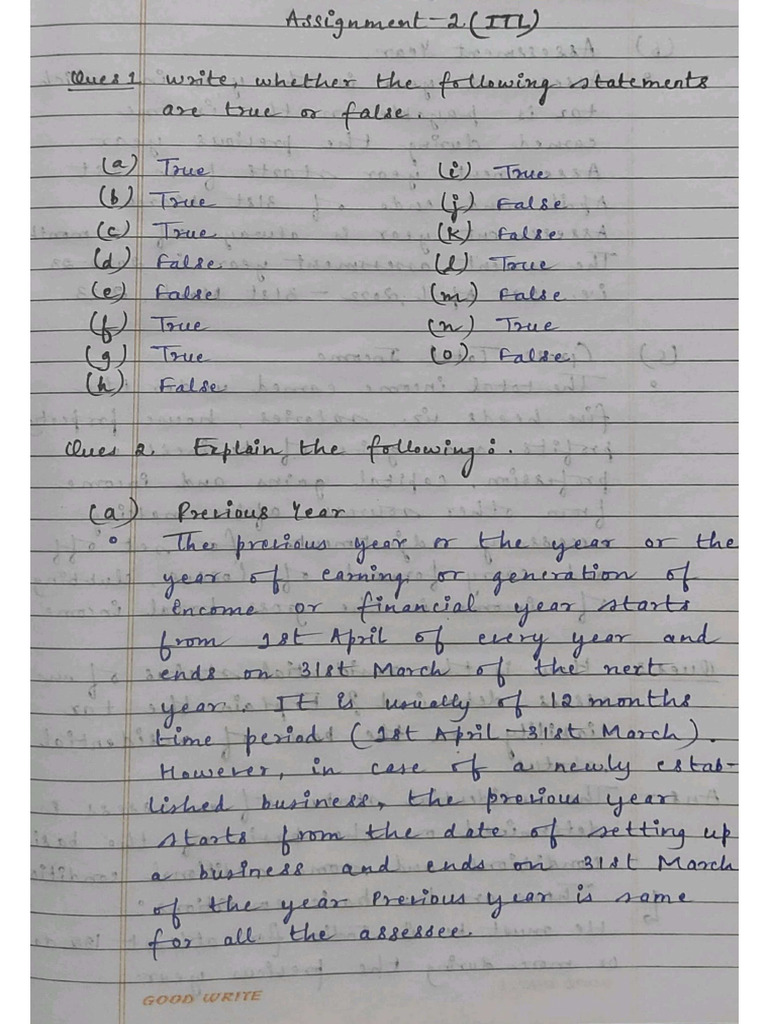 Assignment-2 (ITL)
Ques 1. Write, whether the following statements
are true or false.
(a) True
(b) True
(c) True
(d) False
(e) False
(f) True
(g) True
(h) False
(i) True
(j) False
(k) False
(l) True
(m) False
(n) True
(o) False
Ques 2. Explain the following:.
(a) Previous Year
The previous year or the year or the
year of earning or generation of
Income or financial year starts
from 1st April of every year and
ends on 31st March of the next
year. It is usually of 12 months
time period (1st April-31st March).
However, in case of a newly estab-
lished business, the previous year
starts from the date of setting up
a business and ends on 31st March
of the year Previous year is same
for all the assessee.
GOOD WRITE